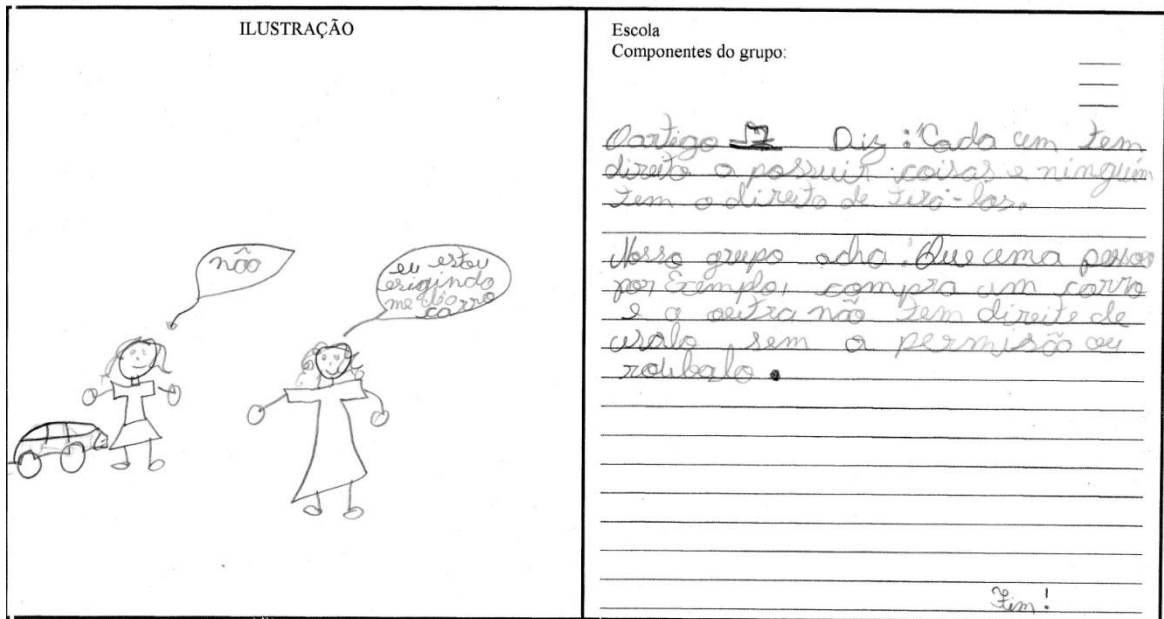 ILUSTRAÇÃO
não
eu estou
esigindo
me dá o
carro
Escola
Componentes do grupo:
O artigo 17 Diz: "Cada um tem
direito a possuir coisas e ninguém
tem o direito de tirá-las.
Nosso grupo acha: Que uma pessoa
por Exemplo, compra um carro
e a outra não tem direito de
usalo sem a permisão ou
roubalo.
Fim!